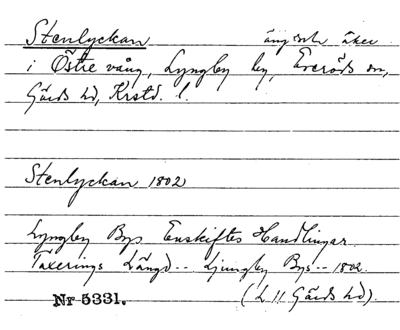 Stenlyckan äng och åker
i Östre vång, Lyngby by, Everöds sn,
Gärds hd, Krstd. l.
Stenlyckan 1802
Lyngby Bys Enskiftes Handlingar.
Taxerings Längd -- Ljungby Bys -- 1802.
Nr 5331. (L 11 Gärds hd).